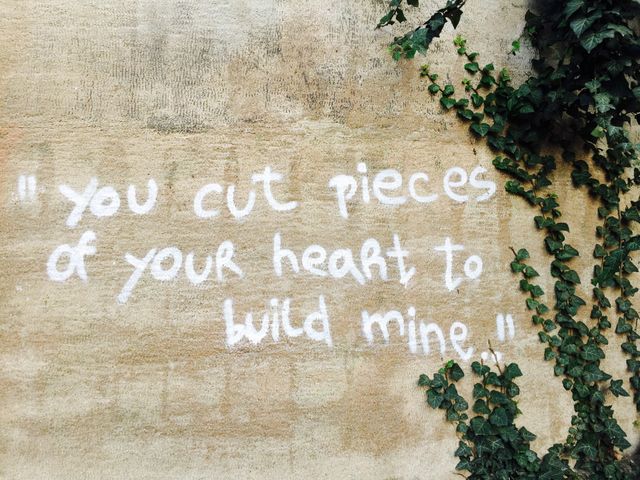 "you cut pieces
of your heart to
build mine.."